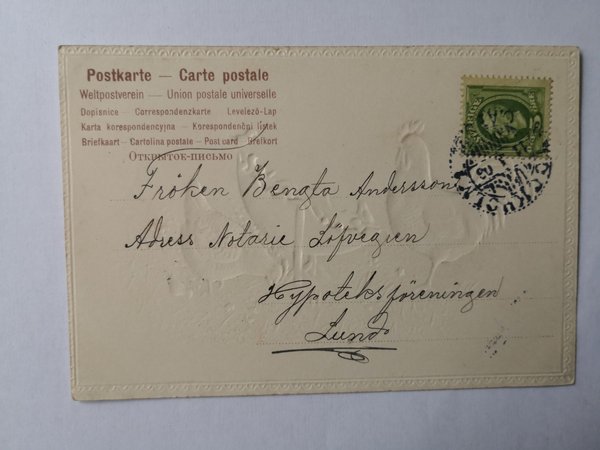 Postkarte — Carte postale
Weltpostverein — Union postale universelle
Dopisnice — Correspondenzkarte Levelező-Lap
Karta korespondencyjna — Korespondenční lístek
Briefkaart — Cartolina postale — Post card — Brefkort
Открытое-письмо
Fröken Bengta Andersson
Adress Notarie Löfvegren
Hypoteksföreningen
Lund